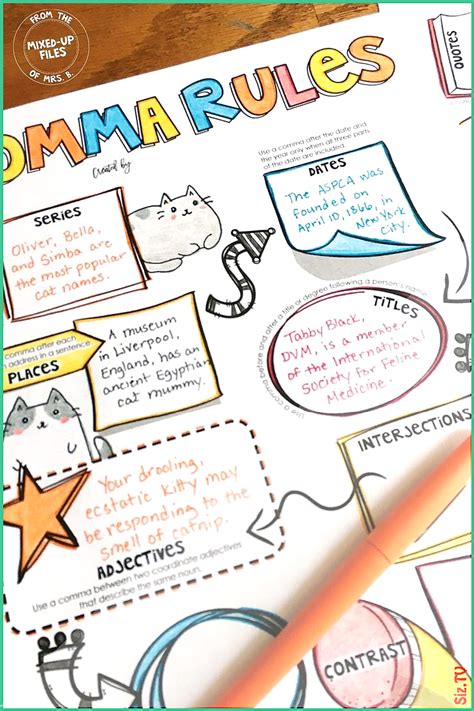 FROM THE
MIXED-UP
FILES
OF MRS. B.
OMMA RULES
Created by
QUOTES
Use a comma after the date and
the year only when all three parts
of the date are included.
DATES
The ASPCA was
founded on
April 10, 1866, in
New York
City.
SERIES
Oliver, Bella,
and Simba are
the most popular
cat names.
Use a comma before and after a title or degree following a person's name.
TITLES
Tabby Black,
DVM, is a member
of the International
Society for Feline
Medicine.
comma after each
address in a sentence
PLACES
A museum
in Liverpool,
England, has an
ancient Egyptian
cat mummy.
INTERJECTIONS
Your drooling,
ecstatic kitty may
be responding to the
smell of catnip.
ADJECTIVES
Use a comma between two coordinate adjectives
that describe the same noun.
CONTRAST
Siz.TV